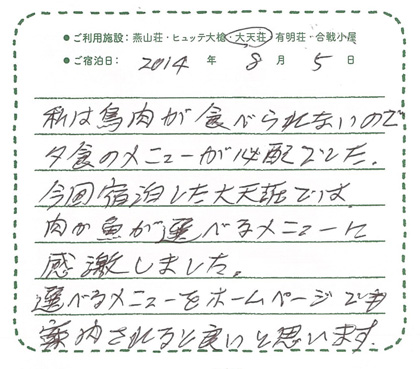 ●ご利用施設：燕山荘・ヒュッテ大槍・大天荘・有明荘・合戦小屋
●ご宿泊日： 2014 年 8 月 5 日
私は鳥肉が食べられないので
夕食のメニューが心配でした。
今回宿泊した大天荘では、
肉か魚が選べるメニューに
感激しました。
選べるメニューをホームページでも
案内されると良いと思います。